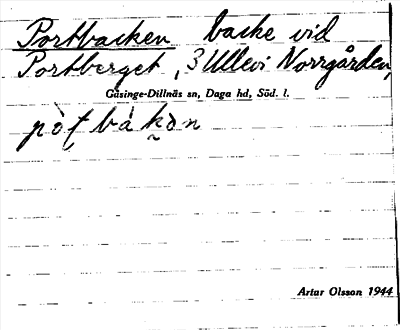 Portbacken backe vid
Portberget, 3 Ullevi Norrgården,
Gåsinge-Dillnäs sn, Daga hd, Söd. l.
Artur Olsson 1944